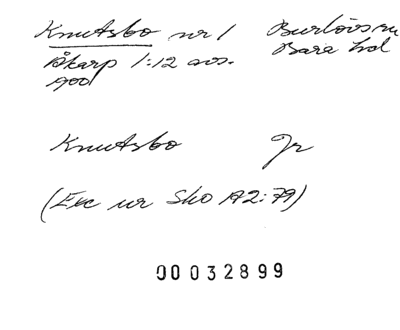 Knutsbo nr 1 Burlövs sn
Åkarp 1:12 avs. Bara hd
gård
Knutsbo Jr
(Exc ur Sko A2:79)
00032899